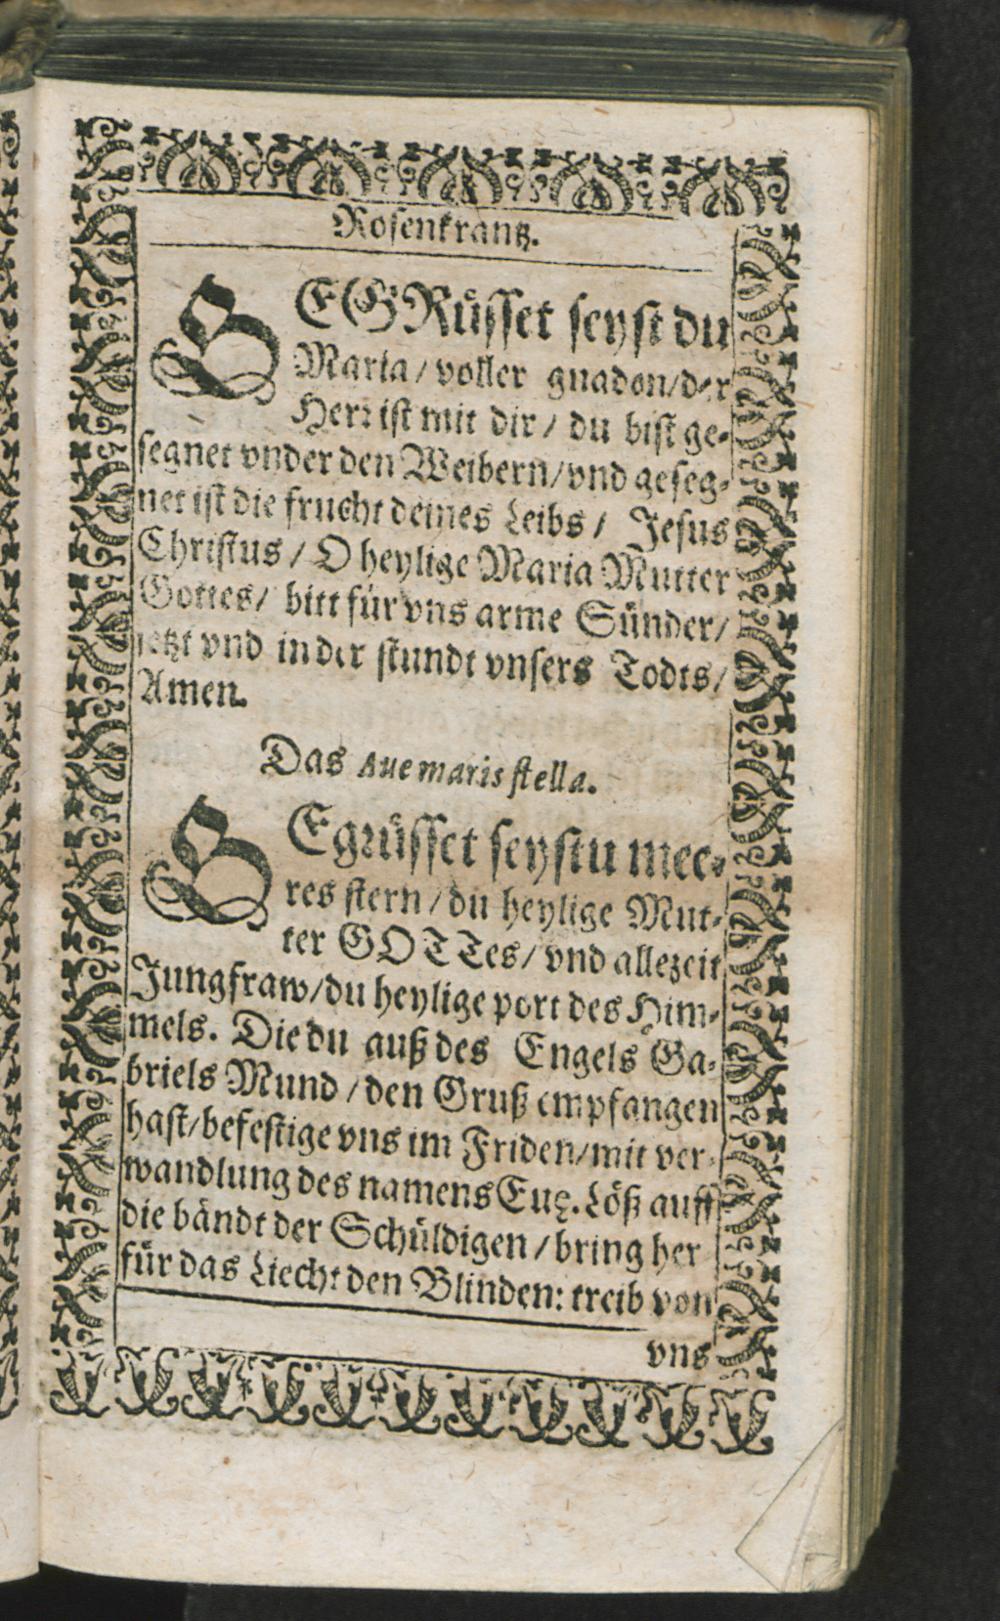 Rosenkrantz.
BEGRüsset seyst du
Maria / voller gnaden/der
Herr ist mit dir / du bist ge-
segnet vnder den Weibern/vnd geseg-
net ist die frucht deines Leibs / Jesus
Christus / O heylige Maria Mutter
Gottes/ bitt für vns arme Sünder/
jetzt vnd in der stundt vnsers Todts/
Amen.
Das Aue maris stella.
BEgrüsset seystu mee-
res stern / du heylige Mut-
ter GOTTes/ vnd allezeit
Jungfraw/du heylige port des Him-
mels. Die du auß des Engels Ga-
briels Mund / den Gruß empfangen
hast/befestige vns im Friden/mit ver-
wandlung des namens Euę. Löß auff
die bändt der Schüldigen / bring her
für das Liecht den Blinden: treib von
vns